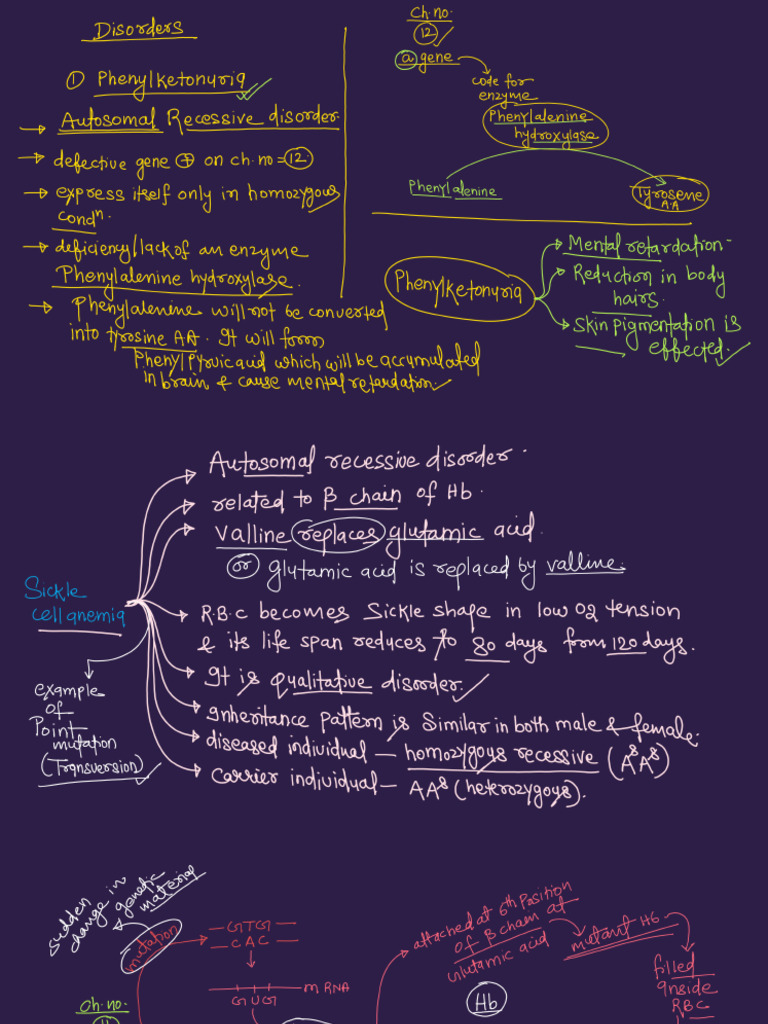 Disorders
① Phenylketonuria
→ Autosomal Recessive disorder.
→ defective gene ⊕ on ch.no = 12
→ express itself only in homozygous
condⁿ.
→ deficiency/lack of an enzyme
Phenylalenine hydroxylase.
→ Phenylalenine will not be converted
into tyrosine AA. It will form
Phenyl Pyruic acid which will be accumulated
in brain & cause mental retardation.
Ch.no.
12
a gene
code for
enzyme
Phenylalenine
hydroxylase
Phenylalenine
Tyrosene
AA
Phenylketonuria
→ Mental retardation-
→ Reduction in body
hairs.
→ Skin pigmentation is
effected.
Sickle
cell anemia
→ Autosomal recessive disorder.
→ related to β chain of Hb.
→ Valline replaces glutamic acid.
or glutamic acid is replaced by valline.
→ R.B.C becomes Sickle shape in low O2 tension
& its life span reduces to 80 days from 120 days.
→ It is qualitative disorder.
→ Inheritance pattern is Similar in both male & female.
→ diseased individual — homozygous recessive (AˢAˢ)
→ carrier individual — AAˢ (heterozygous).
example
of
Point
mutation
(Transversion)
sudden
change in
genetic
material
mutation
— GTG —
— CAC —
mRNA
GUG
Ch.no.
11
attached at 6th Position
of β chain at
glutamic acid
Hb
mutant Hb
filled
inside
RBC